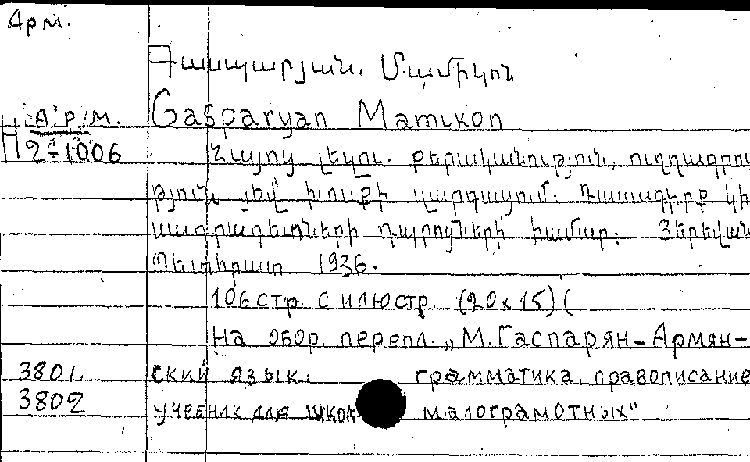 Арм.
Գասպարյան, Մամիկոն
А р м. Gasparyan Mamikon
Н 2-1006 Հայոց լեզու. քերականություն, ուղղագրու
թյուն յեվ խոսքի զարգացում. Դասագիրք կի
սագրագետների դպրոցների համար: Յերեվան
Պետհրատ 1936.
106 стр. с илюстр. (20x15) (
На обор. перепл. „М. Гаспарян-Армян-
3801. ский язык. грамматика, правописание
3802 учебник для школ малограмотных"